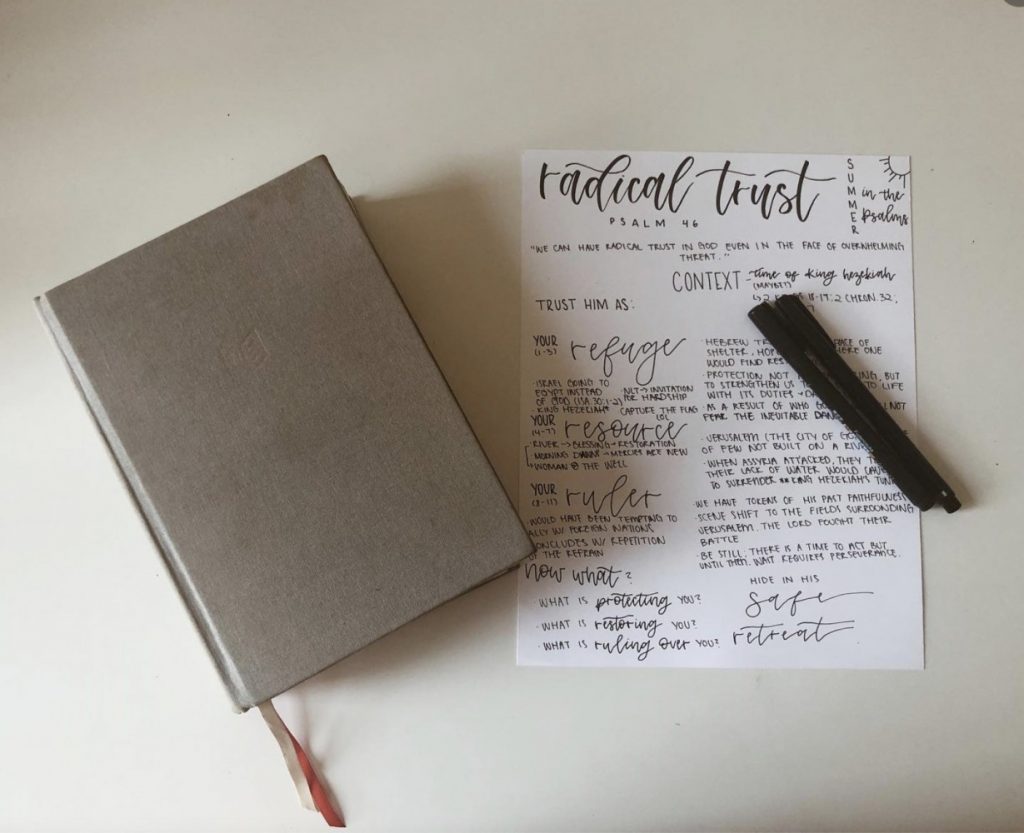 radical trust
PSALM 46
SUMMER
in the
Psalms
"WE CAN HAVE RADICAL TRUST IN GOD EVEN IN THE FACE OF OVERWHELMING
THREAT."
CONTEXT - time of king hezekiah
(MAYBE?)
18-19; 2 CHRON. 32;
TRUST HIM AS:
YOUR refuge
(1-3)
· ISRAEL GOING TO
EGYPT INSTEAD
OF GOD (ISA. 30:1-2)
· KING HEZEKIAH
· NLT → INVITATION
FOR HARDSHIP
CAPTURE THE FLAG
LOL
· HEBREW OF
SHELTER, WHERE ONE
WOULD FIND
· PROTECTION NOT BUT
TO STRENGTHEN US TO LIFE
WITH ITS DUTIES +
· AS A RESULT OF WHO NOT
FEAR THE INEVITABLE
YOUR resource
(4-7)
· RIVER → BLESSING + RESTORATION
MORNING DAWNS → MERCIES ARE NEW
WOMAN @ THE WELL
· JERUSALEM (THE CITY OF
OF FEW NOT BUILT ON A
· WHEN ASSYRIA ATTACKED, THEY
THEIR LACK OF WATER WOULD
TO SURRENDER ** KING HEZEKIAH'S
YOUR ruler
(8-11)
· WOULD HAVE BEEN TEMPTING TO
ALLY W/ FOREIGN NATIONS
CONCLUDES W/ REPETITION
OF THE REFRAIN
· WE HAVE TOKENS OF HIS PAST FAITHFULNESS
· SCENE SHIFT TO THE FIELDS SURROUNDING
JERUSALEM. THE LORD FOUGHT THEIR
BATTLE
· BE STILL; THERE IS A TIME TO ACT BUT
UNTIL THEN, WAIT REQUIRES PERSEVERANCE.
now what?
· WHAT IS protecting YOU?
· WHAT IS restoring YOU?
· WHAT IS ruling over YOU?
HIDE IN HIS
safe
retreat